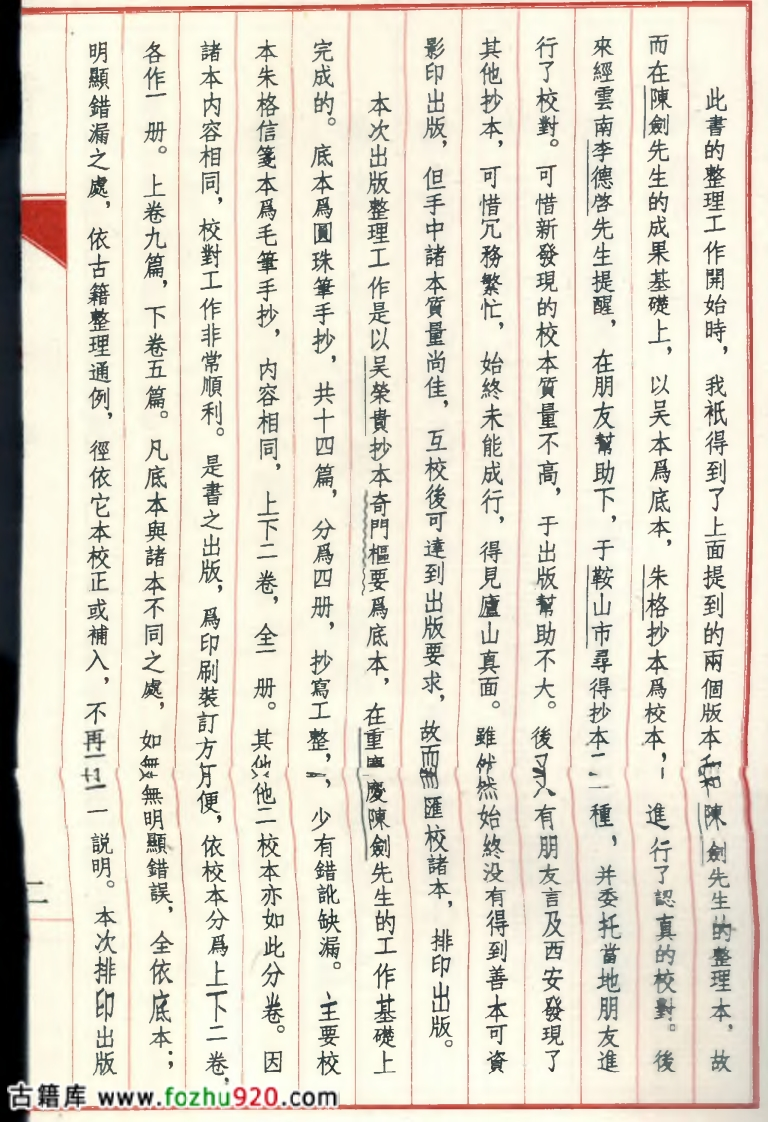 此書的整理工作開始時，我祇得到了上面提到的兩個版本和陳劍先生的整理本，故
而在陳劍先生的成果基礎上，以吴本爲底本，朱格抄本爲校本，進行了認真的校對。後
來經雲南李德啓先生提醒，在朋友幫助下，于鞍山市尋得抄本二種，并委托當地朋友進
行了校對。可惜新發現的校本質量不高，于出版幫助不大。後又有朋友言及西安發現了
其他抄本，可惜冗務繁忙，始終未能成行，得見廬山真面。雖然始終没有得到善本可資
影印出版，但手中諸本質量尚佳，互校後可達到出版要求，故而匯校諸本，排印出版。
本次出版整理工作是以吴榮貴抄本奇門樞要爲底本，在重慶陳劍先生的工作基礎上
完成的。底本爲圓珠筆手抄，共十四篇，分爲四册，抄寫工整，少有錯訛缺漏。主要校
本朱格信箋本爲毛筆手抄，内容相同，上下二卷，全一册。其他二校本亦如此分卷。因
諸本内容相同，校對工作非常順利。是書之出版，爲印刷裝訂方便，依校本分爲上下二卷，
各作一册。上卷九篇，下卷五篇。凡底本與諸本不同之處，如無明顯錯誤，全依底本；
明顯錯漏之處，依古籍整理通例，徑依它本校正或補入，不再一一説明。本次排印出版
二
古籍库 www.fozhu920.com